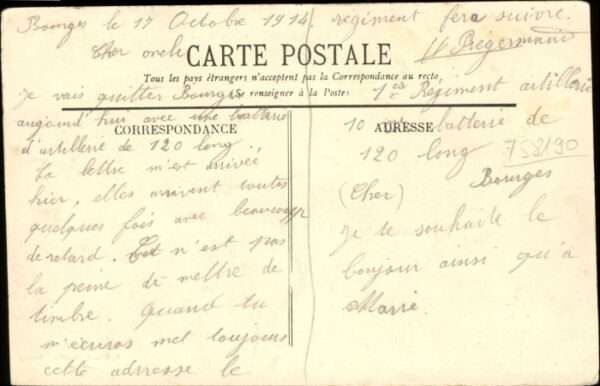 Bourges le 17 Octobre 1914.
Cher oncle
CARTE POSTALE
Tous les pays étrangers n'acceptent pas la Correspondance au recto,
se renseigner à la Poste
CORRESPONDANCE
ADRESSE
Je vais quitter Bourges
aujourd'hui avec une batterie
d'artillerie de 120 long.
Ta lettre m'est arrivée
hier, elles arrivent toutes
quelques fois avec beaucoup
de retard. n'est pas
la peine de mettre de
timbre. Quand tu
m'écriras met toujours
cette adresse le
régiment fera suivre.
1er Régiment artillerie
10 batterie de
120 long
758/90
Bourges
(Cher)
Je te souhaite le
bonjour ainsi qu'à
Marie.